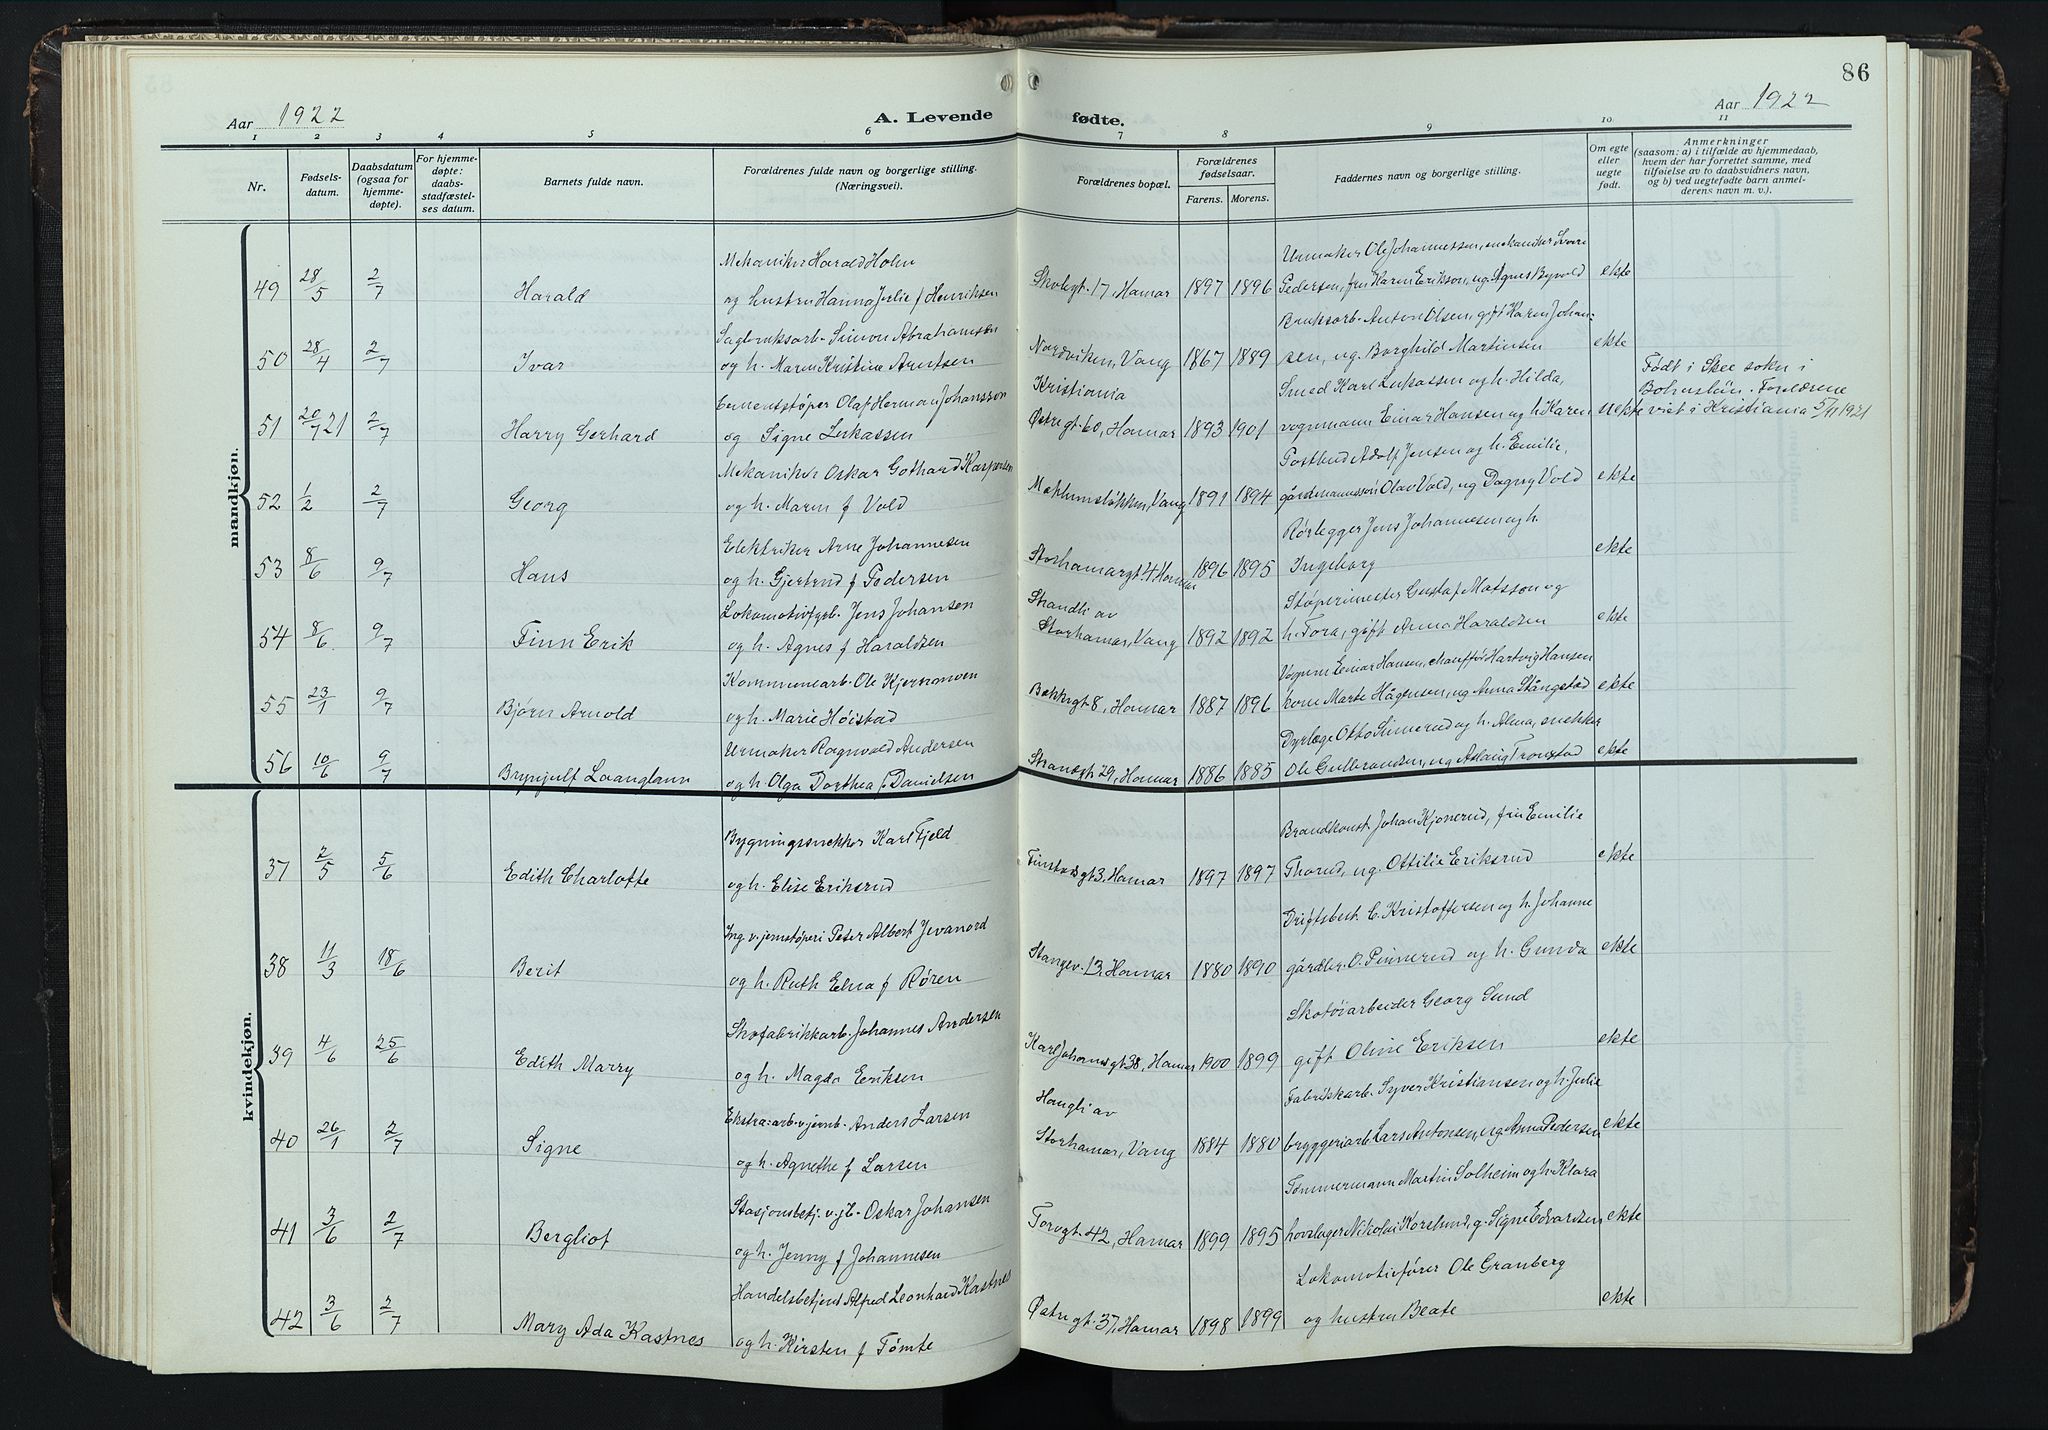 86
Aar 1922
A. Levende
fødte.
Aar 1922
1 2 3 4 5 6 7 8 9 10 11
Nr.
Fødsels-
datum.
Daabsdatum
(ogsaa for
hjemme-
døpte).
For hjemme-
døpte:
daabs-
stadfæstel-
ses datum.
Barnets fulde navn.
Forældrenes fulde navn og borgerlige stilling.
(Næringsvei).
Forældrenes bopæl.
Forældrenes
fødselsaar.
Farens. Morens.
Faddernes navn og borgerlige stilling.
Om egte
eller
uegte
født.
Anmerkninger
(saasom: a) i tilfælde av hjemmedaab,
hvem der har forrettet samme, med
tilføielse av to daabsvidners navn,
og b) ved uegtefødte barn anmel-
derens navn m. v.).
mandkjøn.
Mekaniker Harald Holm
Urmaker Ole Johannessen, mekaniker Sverre
49 28/5 2/7 Harald og hustru Hanna Julie f Henriksen Skolegt. 17, Hamar 1897 1896 Pedersen, fru Karen Erikson, ug. Agnes Byvold ekte
Sagbruksarb. Simon Abrahamsen
Bruksarb. Anton Olsen, gift Karen Johan-
50 28/4 2/7 Ivar og h. Maren Kristine Arntsen Nordviken, Vang 1867 1889 sen, ug. Borghild Martinsen ekte
Cementstøper Olaf Herman Johansson
Kristiania
Smed Karl Lukassen og h. Hilda,
Født i Skee sokn i
Bohuslän. Forældrene
51 20/7 21 2/7 Harry Gerhard og Signe Lukassen Østregt. 60, Hamar 1893 1901 vognmann Einar Hansen og h. Karen uekte viet i Kristiania 5/11 1921
Mekaniker Oskar Gothard Kaspersen
Postbud Adolf Jensen og h. Emilie,
52 1/2 2/7 Georg og h. Maren f Vold Vang 1891 1894 gårdmannssøn Olav Vold, ug Dagny Vold ekte
Elektriker Arne Johannesen
Rørlegger Jens Johannesen og h.
53 8/6 9/7 Hans og h. Gjertrud f Pedersen Storhamargt. 4, Hamar 1896 1895 Ingeborg ekte
Lokomotivfyrb. Jens Johansen
Strandli av
Støperimester Gustaf Matsson og
54 8/6 9/7 Finn Erik og h. Agnes f Haraldsen Storhamar, Vang 1892 1892 h. Tora, gift Anna Haraldsen ekte
Kommunearb. Ole Kjernmoen
Vognm Einar Hansen, chauffør Hartvig Hansen
55 23/1 9/7 Bjørn Arnold og h. Marie Høistad Bekkegt. 8, Hamar 1887 1896 kone Marte Hågensen, ug Anna Stångstad ekte
Urmaker Ragnvald Andersen
Dyrlæge Otto Sinnerud og h. Alma, snekker
56 10/6 9/7 Brynjulf Laanglann og h. Olga Dorthea f. Danielsen Strandgt. 29, Hamar 1886 1885 Ole Gulbrandsen, ug Aslaug Tronstad ekte
kvindekjøn.
Bygningssnekker Karl Fjeld
Brandkonst. Johan Kjonerud, fru Emilie
37 2/5 5/6 Edith Charlotte og h. Elise Eriksrud Finstadsgt 3, Hamar 1897 1897 Thorud, ug. Ottilie Eriksrud ekte
Ing. v. jernstøperi Peter Albert Jevanord
Driftsbest. C. Kristoffersen og h. Johanne
38 11/3 18/6 Berit og h. Ruth Elna f Røren Stangev. 13, Hamar 1880 1890 gårdbr. O. Pinnerud og h. Gunda ekte
Skofabrikkarb. Johannes Andersen
Skotøiarbeider Georg Sund
39 4/6 25/6 Edith Marry og h. Magda Eriksen Karl Johansgt 38, Hamar 1900 1899 gift Oline Eriksen ekte
Ekstraarb. v. jernb. Anders Larsen
Haugli av
Fabrikkarb. Syver Kristiansen og h. Julie
40 26/1 2/7 Signe og h. Agnethe f Larsen Storhamar, Vang 1884 1880 bryggeriarb Lars Antonsen, ug Anna Pedersen ekte
Stasjonsbetj. v. jb. Oskar Johansen
Tømmermann Martin Solheim og h. Klara
41 3/6 2/7 Bergliot og h. Jenny f Johannesen Torvgt. 42, Hamar 1899 1895 hovslager Nikolai Korslund, g. Signe Edvardsen ekte
Handelsbetjent Alfred Leonhard Kastnes
Lokomotivfører Ole Granberg
42 3/6 2/7 Mary Ada Kastnes og h. Kirsten f Tømte Østregt. 37, Hamar 1898 1899 og hustru Beate ekte